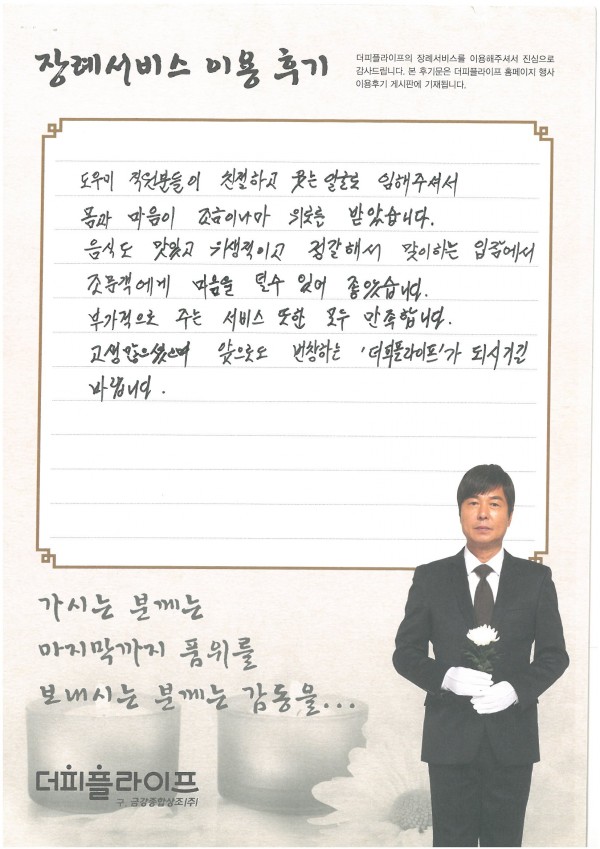 장례서비스 이용 후기
더피플라이프의 장례서비스를 이용해주셔서 진심으로
감사드립니다. 본 후기문은 더피플라이프 홈페이지 행사
이용후기 게시판에 기재됩니다.
도우미 직원분들이 친절하고 웃는 얼굴로 임해주셔서
몸과 마음이 조금이나마 위로를 받았습니다.
음식도 맛있고 위생적이고 정갈해서 맞이하는 입장에서
조문객에게 마음을 덜수 있어 좋았습니다.
부가적으로 주는 서비스 또한 모두 만족합니다.
고생많으셨으며 앞으로도 번창하는 '더피플라이프'가 되시기길
바랍니다.
가시는 분께는
마지막까지 품위를
보내시는 분께는 감동을...
더피플라이프
구. 금강종합상조(주)